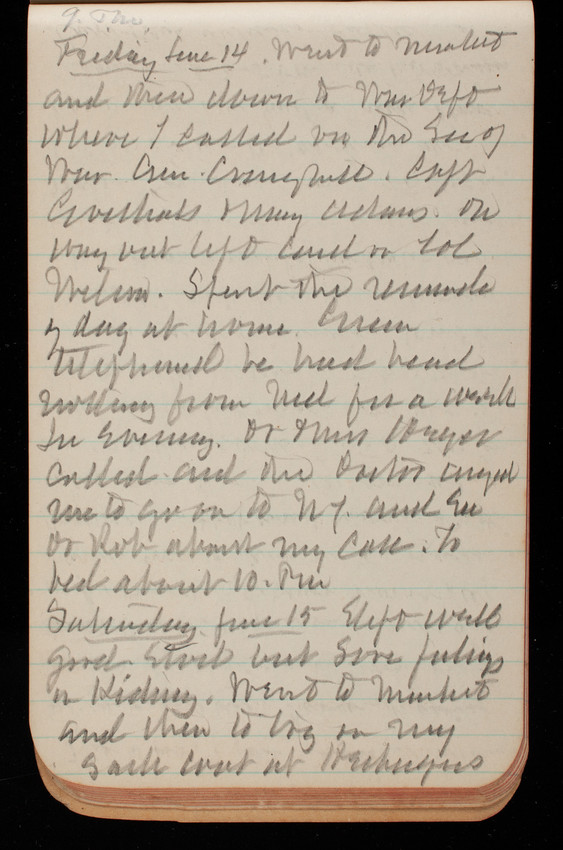 9. Pm.
Friday June 14. Went to market
and then down to War Dept
where I called on the Sec of
War. Gen. Craighill. Capt
Goethals & May Adams. On
way out left card on Col
Wilson. Spent the remainde
of day at home. Green
telephoned he had heard
nothing from Ned for a week
In Evening. Dr & Mrs Heger
called and the Doctor urged
me to go on to N.Y. and See
Dr Rob about my Case. To
bed about 10. Pm
Saturday June 15 Slept well
good Stool but Sore feelings
in Kidney. Went to Market
and then to try on my
Sack Coat at